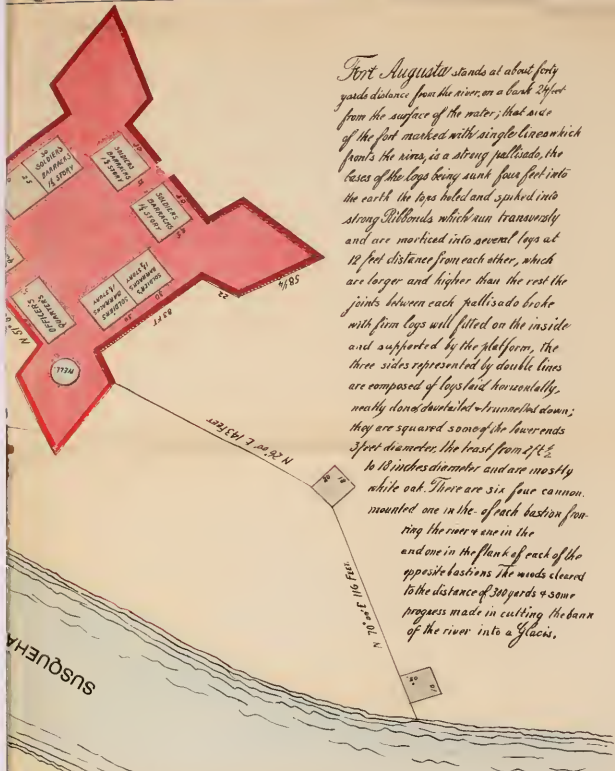 Fort Augusta stands at about forty
yards distance from the river, on a bank 24 feet
from the surface of the water; that side
of the fort marked with single lines which
fronts the river, is a strong pallisado, the
bases of the logs being sunk four feet into
the earth the tops holed and spiked into
strong Ribbonds which run transversly
and are morticed into several logs at
12 feet distance from each other, which
are larger and higher than the rest the
joints between each pallisado broke
with firm logs well fitted on the inside
and supported by the platform, the
three sides represented by double lines
are composed of logs laid horizontally,
neatly done, dovetailed & trunnelled down;
they are squared some of the lower ends
3 feet diameter, the least from 2 ft ½
to 18 inches diameter and are mostly
white oak. There are six four cannon.
mounted one in the - of each bastion fron-
ting the river & one in the
and one in the flank of each of the
opposite bastions The woods cleared
to the distance of 300 yards & some
progress made in cutting the bank
of the river into a Glacis.
30
SOLDIERS
BARRACKS
1½ STORY
25
SOLDIERS
BARRACKS
1½ STORY
30
SOLDIERS
BARRACKS
1½ STORY
30
25
SOLDIERS
BARRACKS
1½ STORY
SOLDIERS
BARRACKS
1½ STORY
30
30
OFFICER'S
QUARTERS
WELL
N 51°
83 FT
22
58¼
N 26° 00' E 143 FEET
10
N 70° 00' E 116 FEET
10
SUSQUEHA